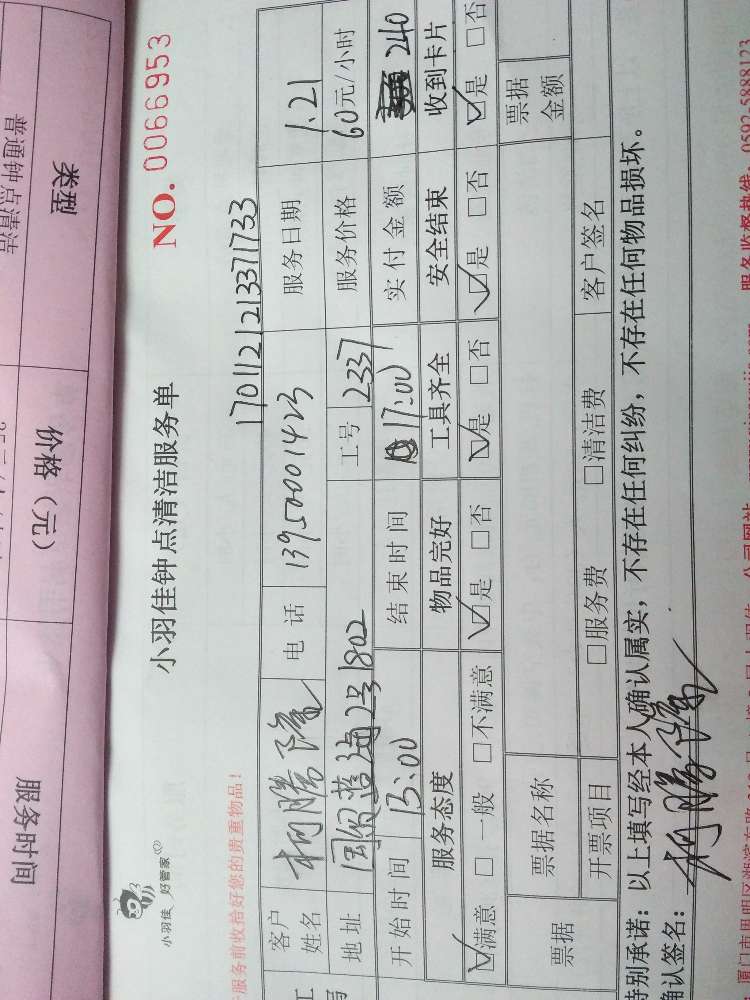 小羽佳 好管家
小羽佳钟点清洁服务单
NO. 0066953
服务前收拾好您的贵重物品!
1701121213371733
客户姓名 柯腾隆 电话 13950001423 服务日期 1.21
地址 国贸蓝海2号1802 工号 2337 服务价格 60元/小时
开始时间 13:00 结束时间 17:00 实付金额 240
服务态度 物品完好 工具齐全 安全结束 收到卡片
☑满意 □一般 □不满意 ☑是 □否 ☑是 □否 ☑是 □否 ☑是 □否
票据 票据名称 票据金额
开票项目 □服务费 □清洁费 客户签名
特别承诺：以上填写经本人确认属实，不存在任何纠纷，不存在任何物品损坏。
确认签名： 柯腾隆
服务监督热线：0592-5888123
类型 价格（元） 服务时间
普通钟点清洁